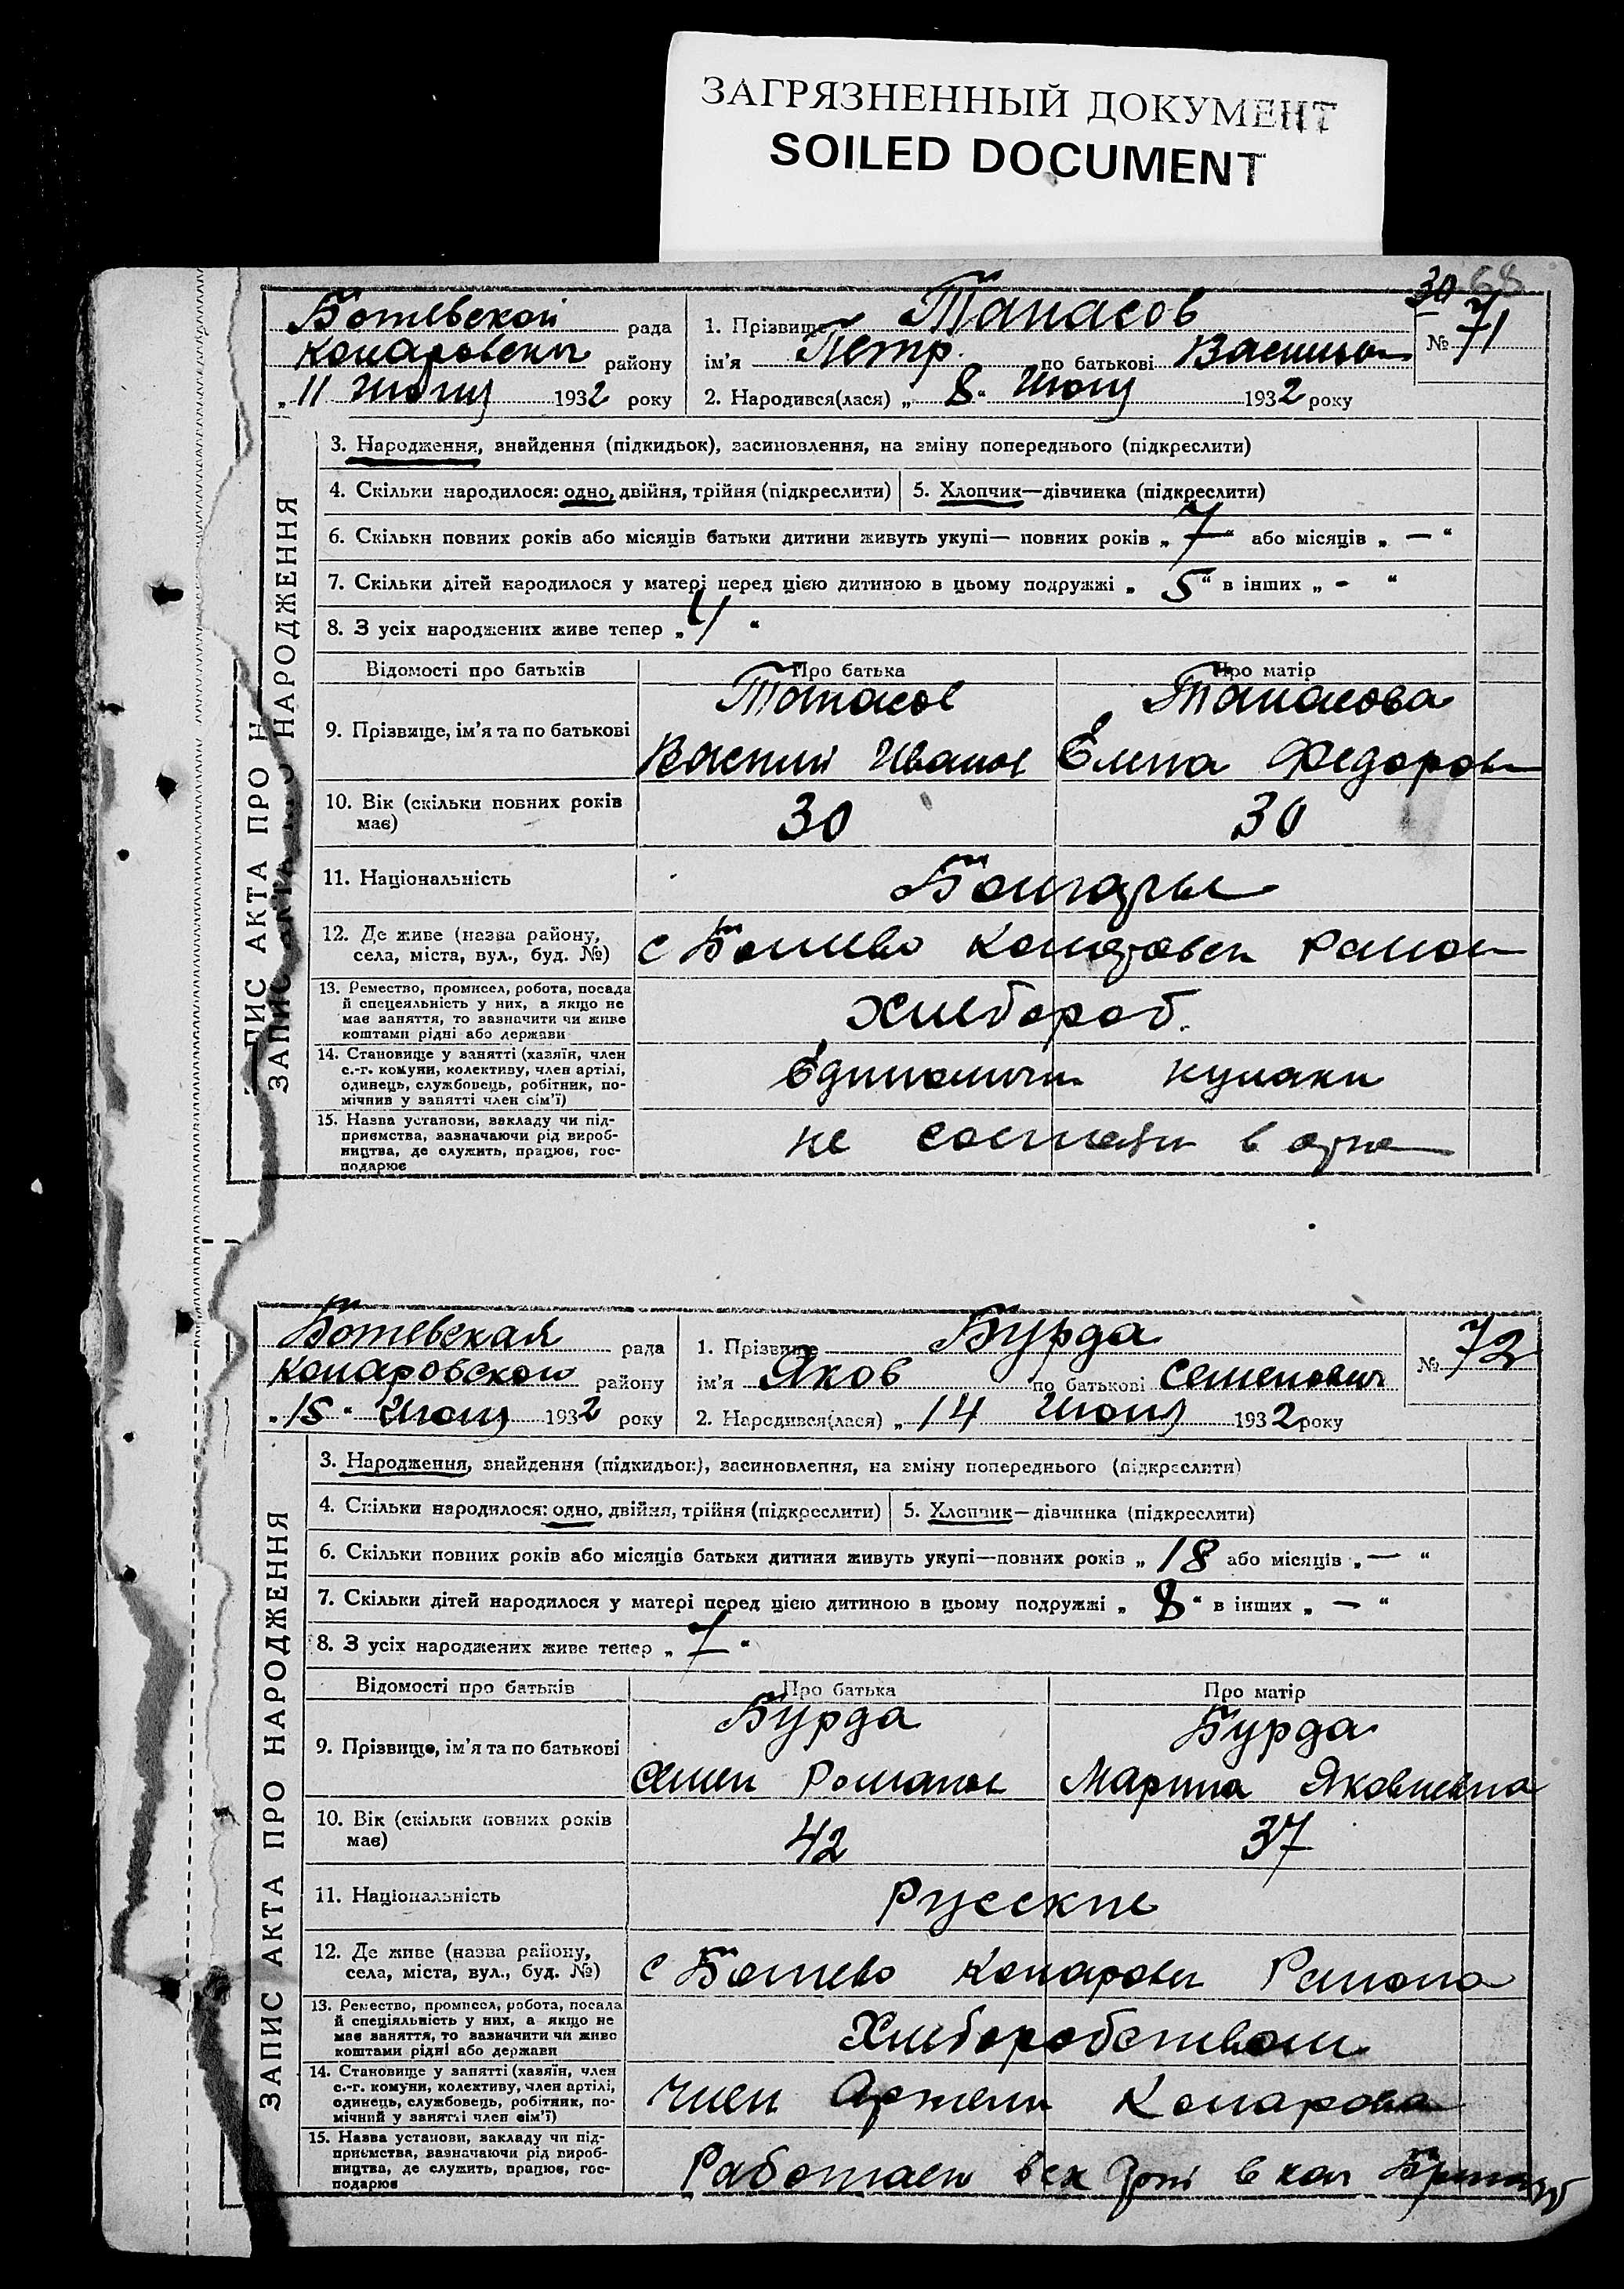 ЗАГРЯЗНЕННЫЙ ДОКУМЕНТ
SOILED DOCUMENT
30 68
Ботевской рада
Коларовск району
„11 Июля 1932 року
1. Прізвище Танасов
ім'я Петр по батькові
2. Народився(лася) „ 8 “ Июля 1932 року
№ 71
ЗАПИС АКТА ПРО НАРОДЖЕННЯ
3. Народження, знайдення (підкидьок), засиновлення, на зміну попереднього (підкреслити)
4. Скільки народилося: одно, двійня, трійня (підкреслити) 5. Хлопчик—дівчинка (підкреслити)
6. Скільки повних років або місяців батьки дитини живуть укупі— повних років „ 7 “ або місяців „ — “
7. Скільки дітей народилося у матері перед цією дитиною в цьому подружжі „ 5 “ в інших „ - “
8. З усіх народжених живе тепер „ 4 “
Відомості про батьків Про батька Про матір
Танасов Танасова
9. Прізвище, ім'я та по батькові
Василий Иванов Елена Федоров
10. Вік (скільки повних років
має)
30 30
11. Національність Болгары
12. Де живе (назва району,
села, міста, вул., буд. №)
с Ботево Район
13. Ремество, промисел, робота, посада
й спецеяльність у них, а якщо не
має заняття, то зазначити чи живе
коштами рідні або держави
Хлебороб.
14. Становище у занятті (хазяїн, член
с.-г. комуни, колективу, член артілі,
одинець, службовець, робітник, по-
мічник у занятті член сім'ї)
кулаки
15. Назва установи, закладу чи під-
приємства, зазначаючи рід вироб-
ництва, де служить, працює, гос-
подарює
не в
Ботевская рада
Коларовского району
„ 15 “ Июля 1932 року
1. Прізвище Бурда
ім'я Яков по батькові Семенович
2. Народився(лася) „ 14 Июля 1932 року
№ 72
ЗАПИС АКТА ПРО НАРОДЖЕННЯ
3. Народження, знайдення (підкидьок), засиновлення, на зміну попереднього (підкреслити)
4. Скільки народилося: одно, двійня, трійня (підкреслити) 5. Хлопчик—дівчинка (підкреслити)
6. Скільки повних років або місяців батьки дитини живуть укупі—повних років „ 18 або місяців „ — “
7. Скільки дітей народилося у матері перед цією дитиною в цьому подружжі „ 8 “ в інших „ — “
8. З усіх народжених живе тепер „ 7 “
Відомості про батьків Про батька Про матір
Бурда Бурда
9. Прізвище, ім'я та по батькові
Семен Романов Марина Яковлевна
10. Вік (скільки повних років
має)
42 37
11. Національність Русские
12. Де живе (назва району,
села, міста, вул., буд. №)
с Ботево Коларовск Района
13. Ремество, промисел, робота, посада
й спеціяльність у них, а якщо не
має заняття, то зазначити чи живе
коштами рідні або держави
Хлеборобством
14. Становище у занятті (хазяїн, член
с.-г. комуни, колективу, член артілі,
одинець, службовець, робітник, по-
мічний у занятті член сім'ї)
Член Артели Коларова
15. Назва установи, закладу чи під-
приємства, зазначаючи рід вироб-
ництва, де служить, працює, гос-
подарює
Работает в